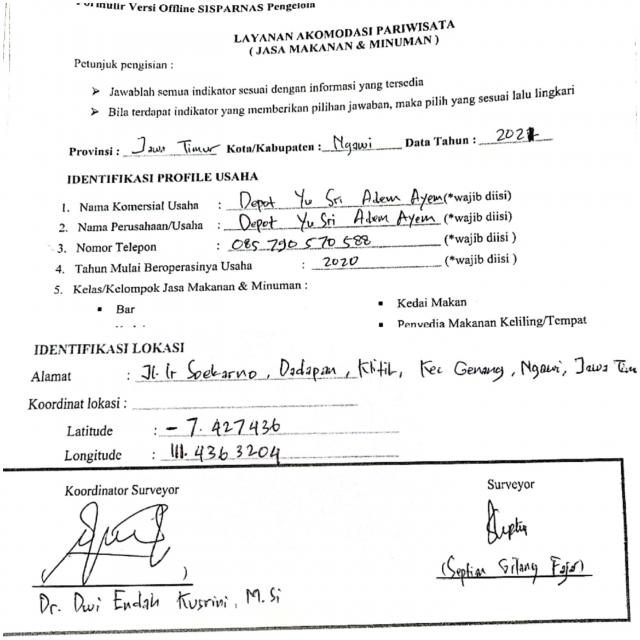 Formulir Versi Offline SISPARNAS Pengelola
LAYANAN AKOMODASI PARIWISATA
( JASA MAKANAN & MINUMAN )
Petunjuk pengisian :
➢ Jawablah semua indikator sesuai dengan informasi yang tersedia
➢ Bila terdapat indikator yang memberikan pilihan jawaban, maka pilih yang sesuai lalu lingkari
Provinsi : Jawa Timur Kota/Kabupaten : Ngawi Data Tahun : 2021
IDENTIFIKASI PROFILE USAHA
1. Nama Komersial Usaha : Depot Yu Sri Adem Ayem (*wajib diisi)
2. Nama Perusahaan/Usaha : Depot Yu Sri Adem Ayem (*wajib diisi)
3. Nomor Telepon : 085 790 570 588 (*wajib diisi )
4. Tahun Mulai Beroperasinya Usaha : 2020 (*wajib diisi )
5. Kelas/Kelompok Jasa Makanan & Minuman :
▪ Bar ▪ Kedai Makan
▪ Penyedia Makanan Keliling/Tempat
IDENTIFIKASI LOKASI
Alamat : Jl. Ir Soekarno, Dadapan, Klitik, Kec Genang, Ngawi, Jawa Tim
Koordinat lokasi :
Latitude : - 7. 427436
Longitude : 111. 4363204
Koordinator Surveyor Surveyor
Septian
(Septian Gilang Fajar)
Dr. Dwi Endah Kusrini, M.Si